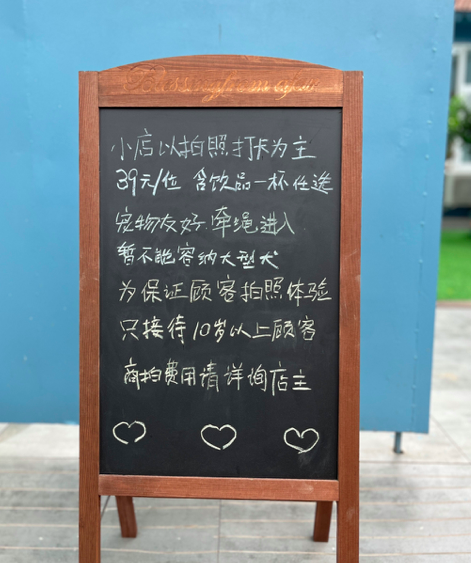 Blessing from afar
小店以拍照打卡为主
39元/位 含饮品一杯任选
宠物友好.牵绳进入
暂不能容纳大型犬
为保证顾客拍照体验
只接待10岁以上顾客
商拍费用请详询店主